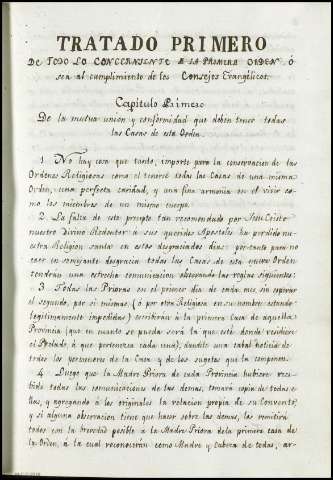 TRATADO PRIMERO
DE TODO LO CONCERNIENTE A LA PRIMERA ORDEN ó
sea al cumplimiento de los Consejos Evangélicos.
Capitulo Primero
De la mutua union y conformidad que deben tener todas
las Casas de esta Orden
1. No hay cosa que tanto importe para la conservacion de las
Ordenes Religiosas como el tener todas las Casas de una misma
Orden, una perfecta caridad, y una fina armonia en el vivir co-
mo los miembros de un mismo cuerpo.
2. La falta de este precepto tan recomendado por Jesu Cristo
nuestro Divino Redentor á sus queridos Apostoles ha perdido nu-
estra Religion santa en estos desgraciados dias: por tanto para no
caer en semejante desgracia todas las Casas de esta Orden
tendrán una estrecha comunicacion observando las reglas siguientes:
3. Todas las Prioras en el primer dia de cada mes, sin espirar
el segundo, por si mismas, (ó por otra Religiosa en su nombre estando
legitimamente impedidas) escribirán á la primera Casa de aquella
Provincia (que en cuanto se pueda será la que esté donde residiere
el Prelado, á que pertenezca cada una), dandole una cabal noticia de
todos los pormenores de la Casa y de los sugetos que la componen.
4. Luego que la Madre Priora de cada Provincia hubiere reci-
bido todas las comunicaciones de las demas, tomará copia de todas e-
llas, y agregando á los originales la relacion propia de su Convento,
y si alguna observacion tiene que hacer sobre las demas, las remitirá
todos con la brevedad posible a la Madre Priora de la primera casa de
la Orden, á la cual reconocerán como Madre y Cabeza de todas; ar-